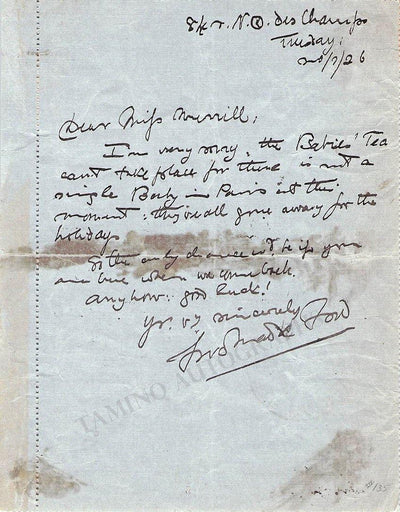 84 r. N. D. des Champs
Tuesday:
20/7/26
Dear Miss Merrill;
I'm very sorry, the Babies' Tea
can't take place for there is not a
single Baby in Paris at this
moment: they've all gone away for the
holidays
So the only chance wd. be if you
are here when we come back.
Anyhow: good luck!
Yrs. v'y sincerely
Ford Madox Ford
TAMINO AUTOGRAPHS
135